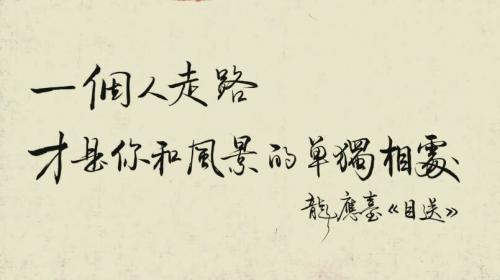 一個人走路
才是你和風景的单獨相處
龍應臺《目送》